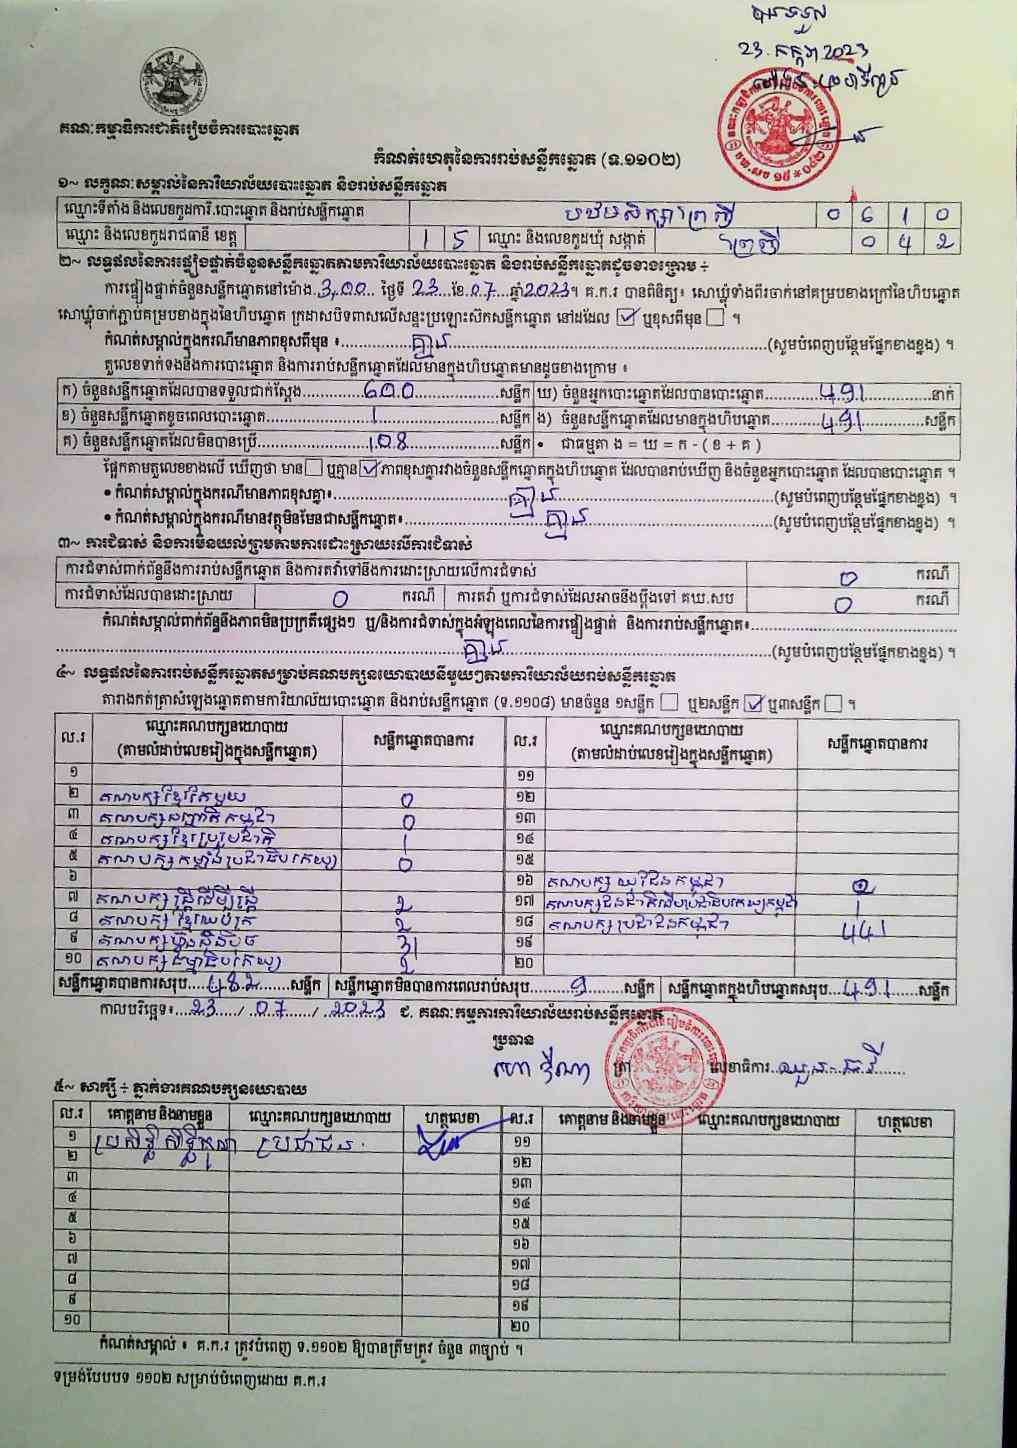 បានទទួល
23 កក្កដា 2023
គណៈកម្មាធិការជាតិរៀបចំការបោះឆ្នោត
កំណត់ហេតុនៃការរាប់សន្លឹកឆ្នោត (ទ.១១០២)
១~ លក្ខណៈសម្គាល់នៃការិយាល័យបោះឆ្នោត និងរាប់សន្លឹកឆ្នោត
ឈ្មោះទីតាំង និងលេខកូដការិ.បោះឆ្នោត និងរាប់សន្លឹកឆ្នោត 0 6 1 0
ឈ្មោះ និងលេខកូដរាជធានី ខេត្ត 1 5 ឈ្មោះ និងលេខកូដឃុំ សង្កាត់ 0 4 2
២~ លទ្ធផលនៃការផ្ទៀងផ្ទាត់ចំនួនសន្លឹកឆ្នោតតាមការិយាល័យបោះឆ្នោត និងរាប់សន្លឹកឆ្នោតដូចខាងក្រោម ÷
ការផ្ទៀងផ្ទាត់ចំនួនសន្លឹកឆ្នោតនៅម៉ោង 3,00 ថ្ងៃទី 23 ខែ 07 ឆ្នាំ 2023។ គ.ក.រ បានពិនិត្យ៖ សោឃ្លុំទាំងពីរចាក់នៅគម្របខាងក្រៅនៃហិបឆ្នោត
សោឃ្លុំចាក់ភ្ជាប់គម្របខាងក្នុងនៃហិបឆ្នោត ក្រដាសបិទពាសលើសន្ទះប្រឡោះសឹកសន្លឹកឆ្នោត នៅដដែល ☑ ឬខុសពីមុន ☐ ។
កំណត់សម្គាល់ក្នុងករណីមានភាពខុសពីមុន ៖ គ្មាន (សូមបំពេញបន្ថែមផ្នែកខាងខ្នង) ។
តួលេខទាក់ទងនឹងការបោះឆ្នោត និងការរាប់សន្លឹកឆ្នោតដែលមានក្នុងហិបឆ្នោតមានដូចខាងក្រោម ៖
ក) ចំនួនសន្លឹកឆ្នោតដែលបានទទួលជាក់ស្តែង 600 សន្លឹក ឃ) ចំនួនអ្នកបោះឆ្នោតដែលបានបោះឆ្នោត 491 នាក់
ខ) ចំនួនសន្លឹកឆ្នោតខូចពេលបោះឆ្នោត 1 សន្លឹក ង) ចំនួនសន្លឹកឆ្នោតដែលមានក្នុងហិបឆ្នោត 491 សន្លឹក
គ) ចំនួនសន្លឹកឆ្នោតដែលមិនបានប្រើ 108 សន្លឹក • ជាធម្មតា ង = ឃ = ក - ( ខ + គ )
ផ្អែកតាមតួលេខខាងលើ ឃើញថា មាន ☐ ឬគ្មាន ☑ ភាពខុសគ្នារវាងចំនួនសន្លឹកឆ្នោតក្នុងហិបឆ្នោត ដែលបានរាប់ឃើញ និងចំនួនអ្នកបោះឆ្នោត ដែលបានបោះឆ្នោត ។
• កំណត់សម្គាល់ក្នុងករណីមានភាពខុសគ្នា៖ គ្មាន (សូមបំពេញបន្ថែមផ្នែកខាងខ្នង) ។
• កំណត់សម្គាល់ក្នុងករណីមានវត្ថុមិនមែនជាសន្លឹកឆ្នោត៖ គ្មាន (សូមបំពេញបន្ថែមផ្នែកខាងខ្នង) ។
៣~ ការជំទាស់ និងការមិនយល់ព្រមតាមការដោះស្រាយលើការជំទាស់
ការជំទាស់ពាក់ព័ន្ធនឹងការរាប់សន្លឹកឆ្នោត និងការតវ៉ាទៅនឹងការដោះស្រាយលើការជំទាស់ 0 ករណី
ការជំទាស់ដែលបានដោះស្រាយ 0 ករណី ការតវ៉ា ឬការជំទាស់ដែលអាចនឹងប្តឹងទៅ គឃ.សប 0 ករណី
កំណត់សម្គាល់ពាក់ព័ន្ធនឹងភាពមិនប្រក្រតីផ្សេងៗ ឬ/និងការជំទាស់ក្នុងអំឡុងពេលនៃការផ្ទៀងផ្ទាត់ និងការរាប់សន្លឹកឆ្នោត៖
គ្មាន (សូមបំពេញបន្ថែមផ្នែកខាងខ្នង) ។
៤~ លទ្ធផលនៃការរាប់សន្លឹកឆ្នោតសម្រាប់គណបក្សនយោបាយនីមួយៗតាមការិយាល័យរាប់សន្លឹកឆ្នោត
តារាងកត់ត្រាសំឡេងឆ្នោតតាមការិយាល័យបោះឆ្នោត និងរាប់សន្លឹកឆ្នោត (ទ.១១០៨) មានចំនួន ១សន្លឹក ☐ ឬ២សន្លឹក ☑ ឬ៣សន្លឹក ☐ ។
ល.រ ឈ្មោះគណបក្សនយោបាយ (តាមលំដាប់លេខរៀងក្នុងសន្លឹកឆ្នោត) សន្លឹកឆ្នោតបានការ ល.រ ឈ្មោះគណបក្សនយោបាយ (តាមលំដាប់លេខរៀងក្នុងសន្លឹកឆ្នោត) សន្លឹកឆ្នោតបានការ
១ ១១
២ គណបក្សខ្មែរតែមួយ 0 ១២
៣ គណបក្សសញ្ជាតិកម្ពុជា 0 ១៣
៤ គណបក្សខ្មែររួបរួមជាតិ 1 ១៤
៥ គណបក្សកម្លាំងប្រជាធិបតេយ្យ 0 ១៥
៦ ១៦ គណបក្សយុវជនកម្ពុជា
៧ គណបក្ស 2 ១៧ គណបក្សជនជាតិដើមប្រជាធិបតេយ្យកម្ពុជា 1
៨ គណបក្សខ្មែរឈប់ក្រ 2 ១៨ គណបក្សប្រជាជនកម្ពុជា 441
៩ គណបក្សហ្វ៊ុនស៊ិនប៉ិច 31 ១៩
១០ គណបក្សធម្មាធិបតេយ្យ 2 ២០
សន្លឹកឆ្នោតបានការសរុប 482 សន្លឹក សន្លឹកឆ្នោតមិនបានការពេលរាប់សរុប 9 សន្លឹក សន្លឹកឆ្នោតក្នុងហិបឆ្នោតសរុប 491 សន្លឹក
កាលបរិច្ឆេទ៖ 23 / 07 / 2023 ជ. គណៈកម្មការការិយាល័យរាប់សន្លឹកឆ្នោត
ប្រធាន
ហោ វីណា ត្រា លេខាធិការ
៥~ សាក្សី ÷ ភ្នាក់ងារគណបក្សនយោបាយ
ល.រ គោត្តនាម និងនាមខ្លួន ឈ្មោះគណបក្សនយោបាយ ហត្ថលេខា ល.រ គោត្តនាម និងនាមខ្លួន ឈ្មោះគណបក្សនយោបាយ ហត្ថលេខា
១ ប្រជាជន ១១
២ ១២
៣ ១៣
៤ ១៤
៥ ១៥
៦ ១៦
៧ ១៧
៨ ១៨
៩ ១៩
១០ ២០
កំណត់សម្គាល់ ៖ គ.ក.រ ត្រូវបំពេញ ទ.១១០២ ឱ្យបានត្រឹមត្រូវ ចំនួន ៣ច្បាប់ ។
ទម្រង់បែបបទ ១១០២ សម្រាប់បំពេញដោយ គ.ក.រ